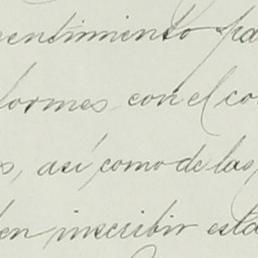 sentimiento pa
formes con el co
s, así como de las
en inscribir esta